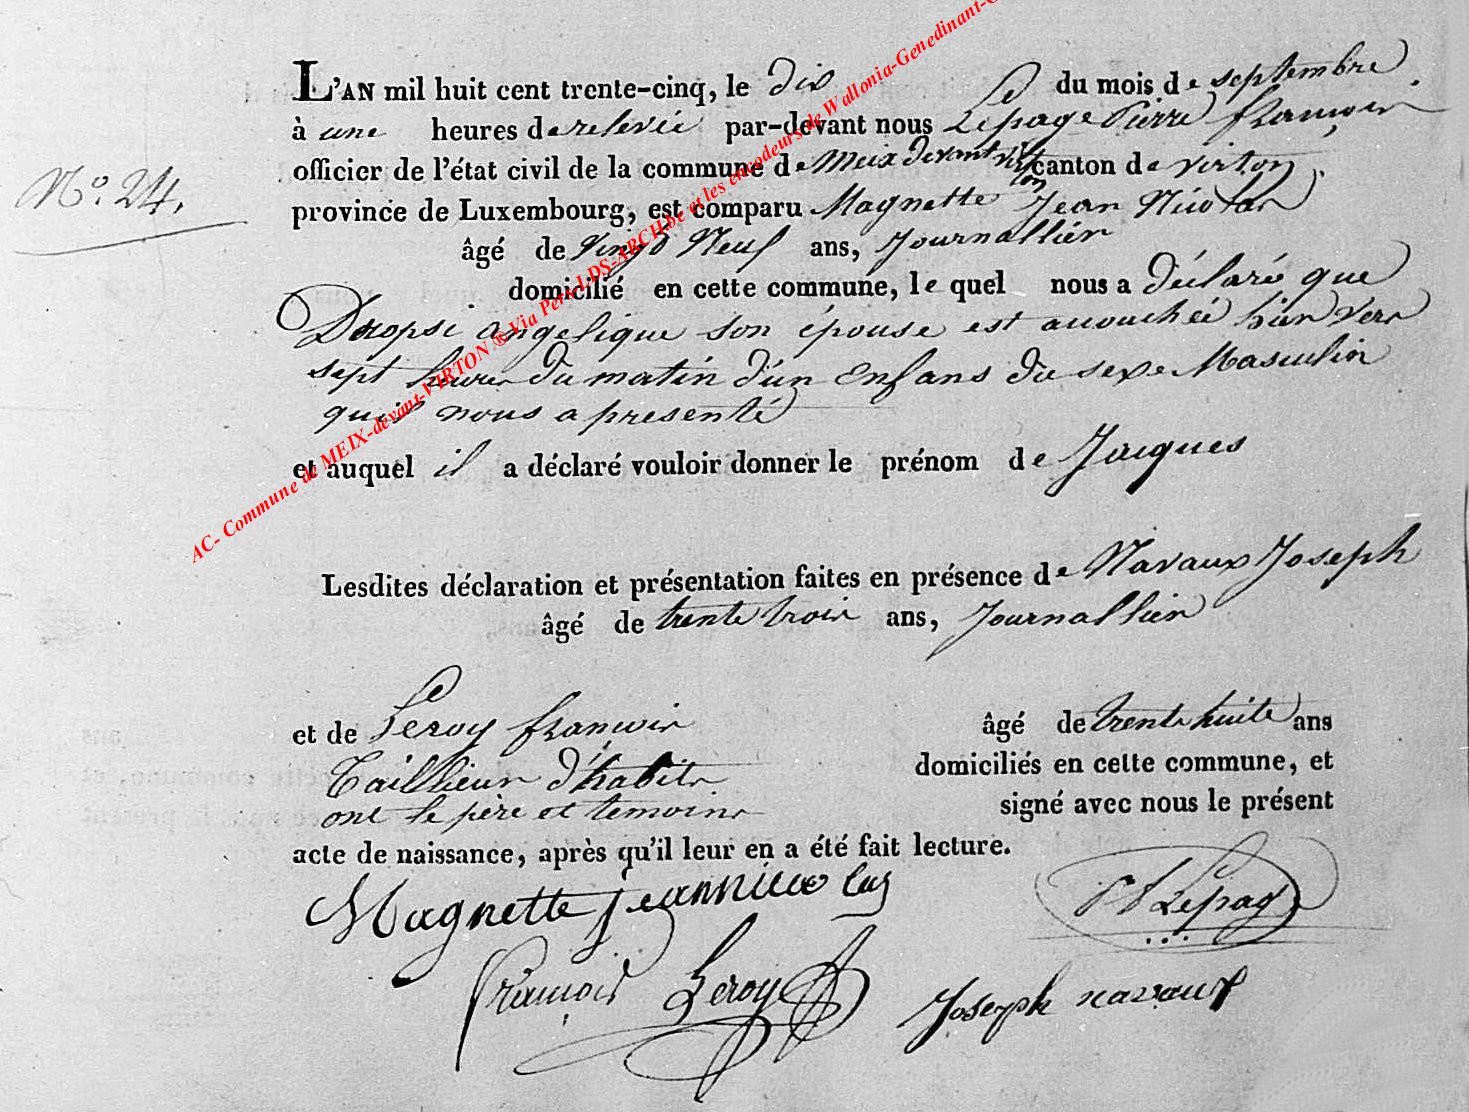 L'AN mil huit cent trente-cinq, le dix du mois de septembre
à une heures de relevée par-devant nous Lepage Pierre françois
officier de l'état civil de la commune de Meix devant virton canton de virton,
N.° 24.
province de Luxembourg, est comparu Magnette Jean Nicolas
âgé de vingt Neuf ans, Journallier
domicilié en cette commune, le quel nous a déclaré que
angelique son épouse est accouchée hier vers
sept heures du matin d'un Enfans du sexe Masculin
qu'il nous a presenté
et auquel il a déclaré vouloir donner le prénom de Jacques
Lesdites déclaration et présentation faites en présence de Navaux Joseph
âgé de trente trois ans, Journallier
et de Leroy françois âgé de trente huite ans
Taillieur d'habits domiciliés en cette commune, et
ont le père et temoins signé avec nous le présent
acte de naissance, après qu'il leur en a été fait lecture.
Magnette jean nicolas
P f Lepage
françois Leroy
Joseph navaux
AC- Commune de MEIX-devant-VIRTON ® Via Pers-LDS-ARCH.be et les encodeurs de Wallonia-Genedinant-